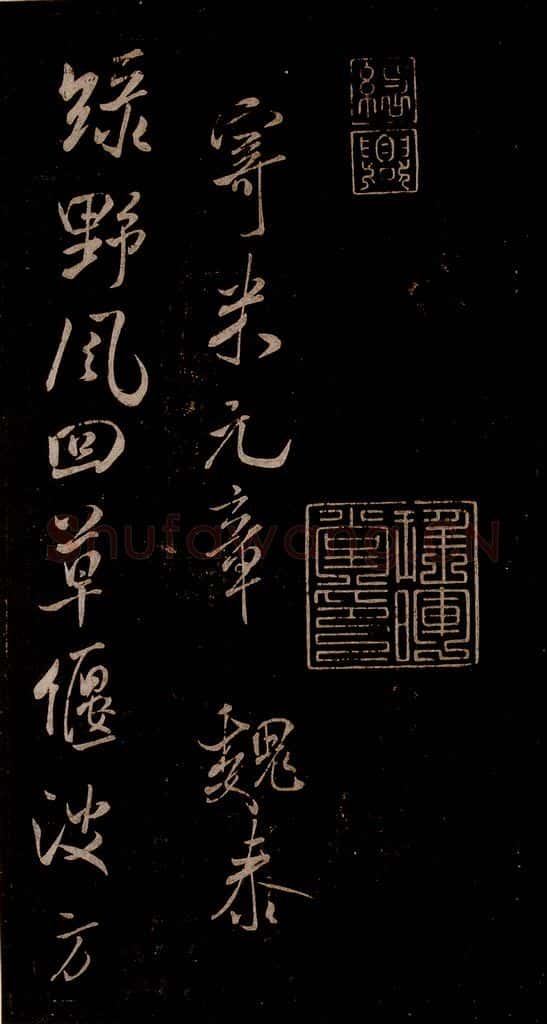 紹興
瑤暉堂印
寄米元章 魏泰
綠野風回草偃波方
Shufawang.CN